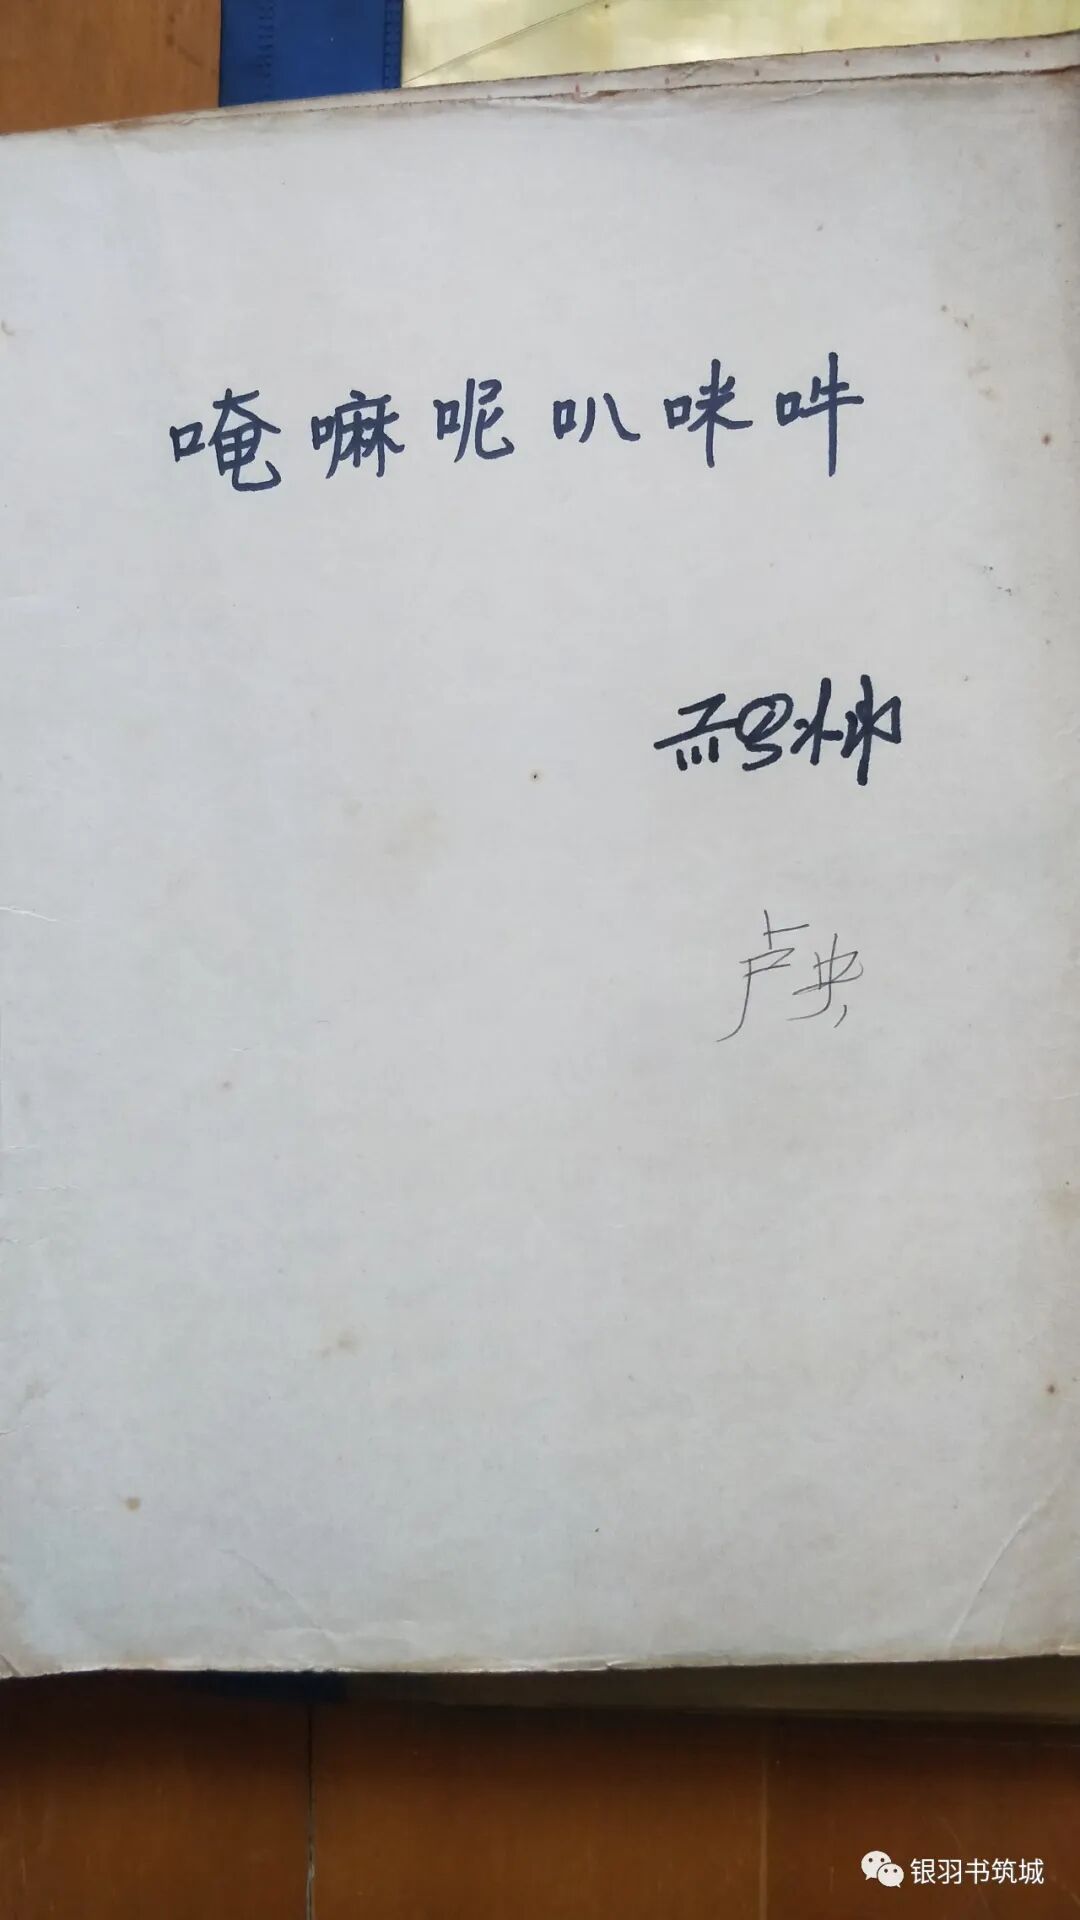 唵嘛呢叭咪吽
卢央
银羽书筑城